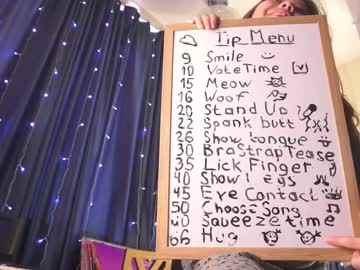 Tip Menu
9 Smile
10 Vote Time
15 Meow
16 Woof
20 Stand Up
22 Spank butt
26 Show tongue
30 Bra Strap Tease
35 Lick Finger
40 Show legs
45 Eye Contact
50 Choose Song
60 Squeeze time
66 Hug